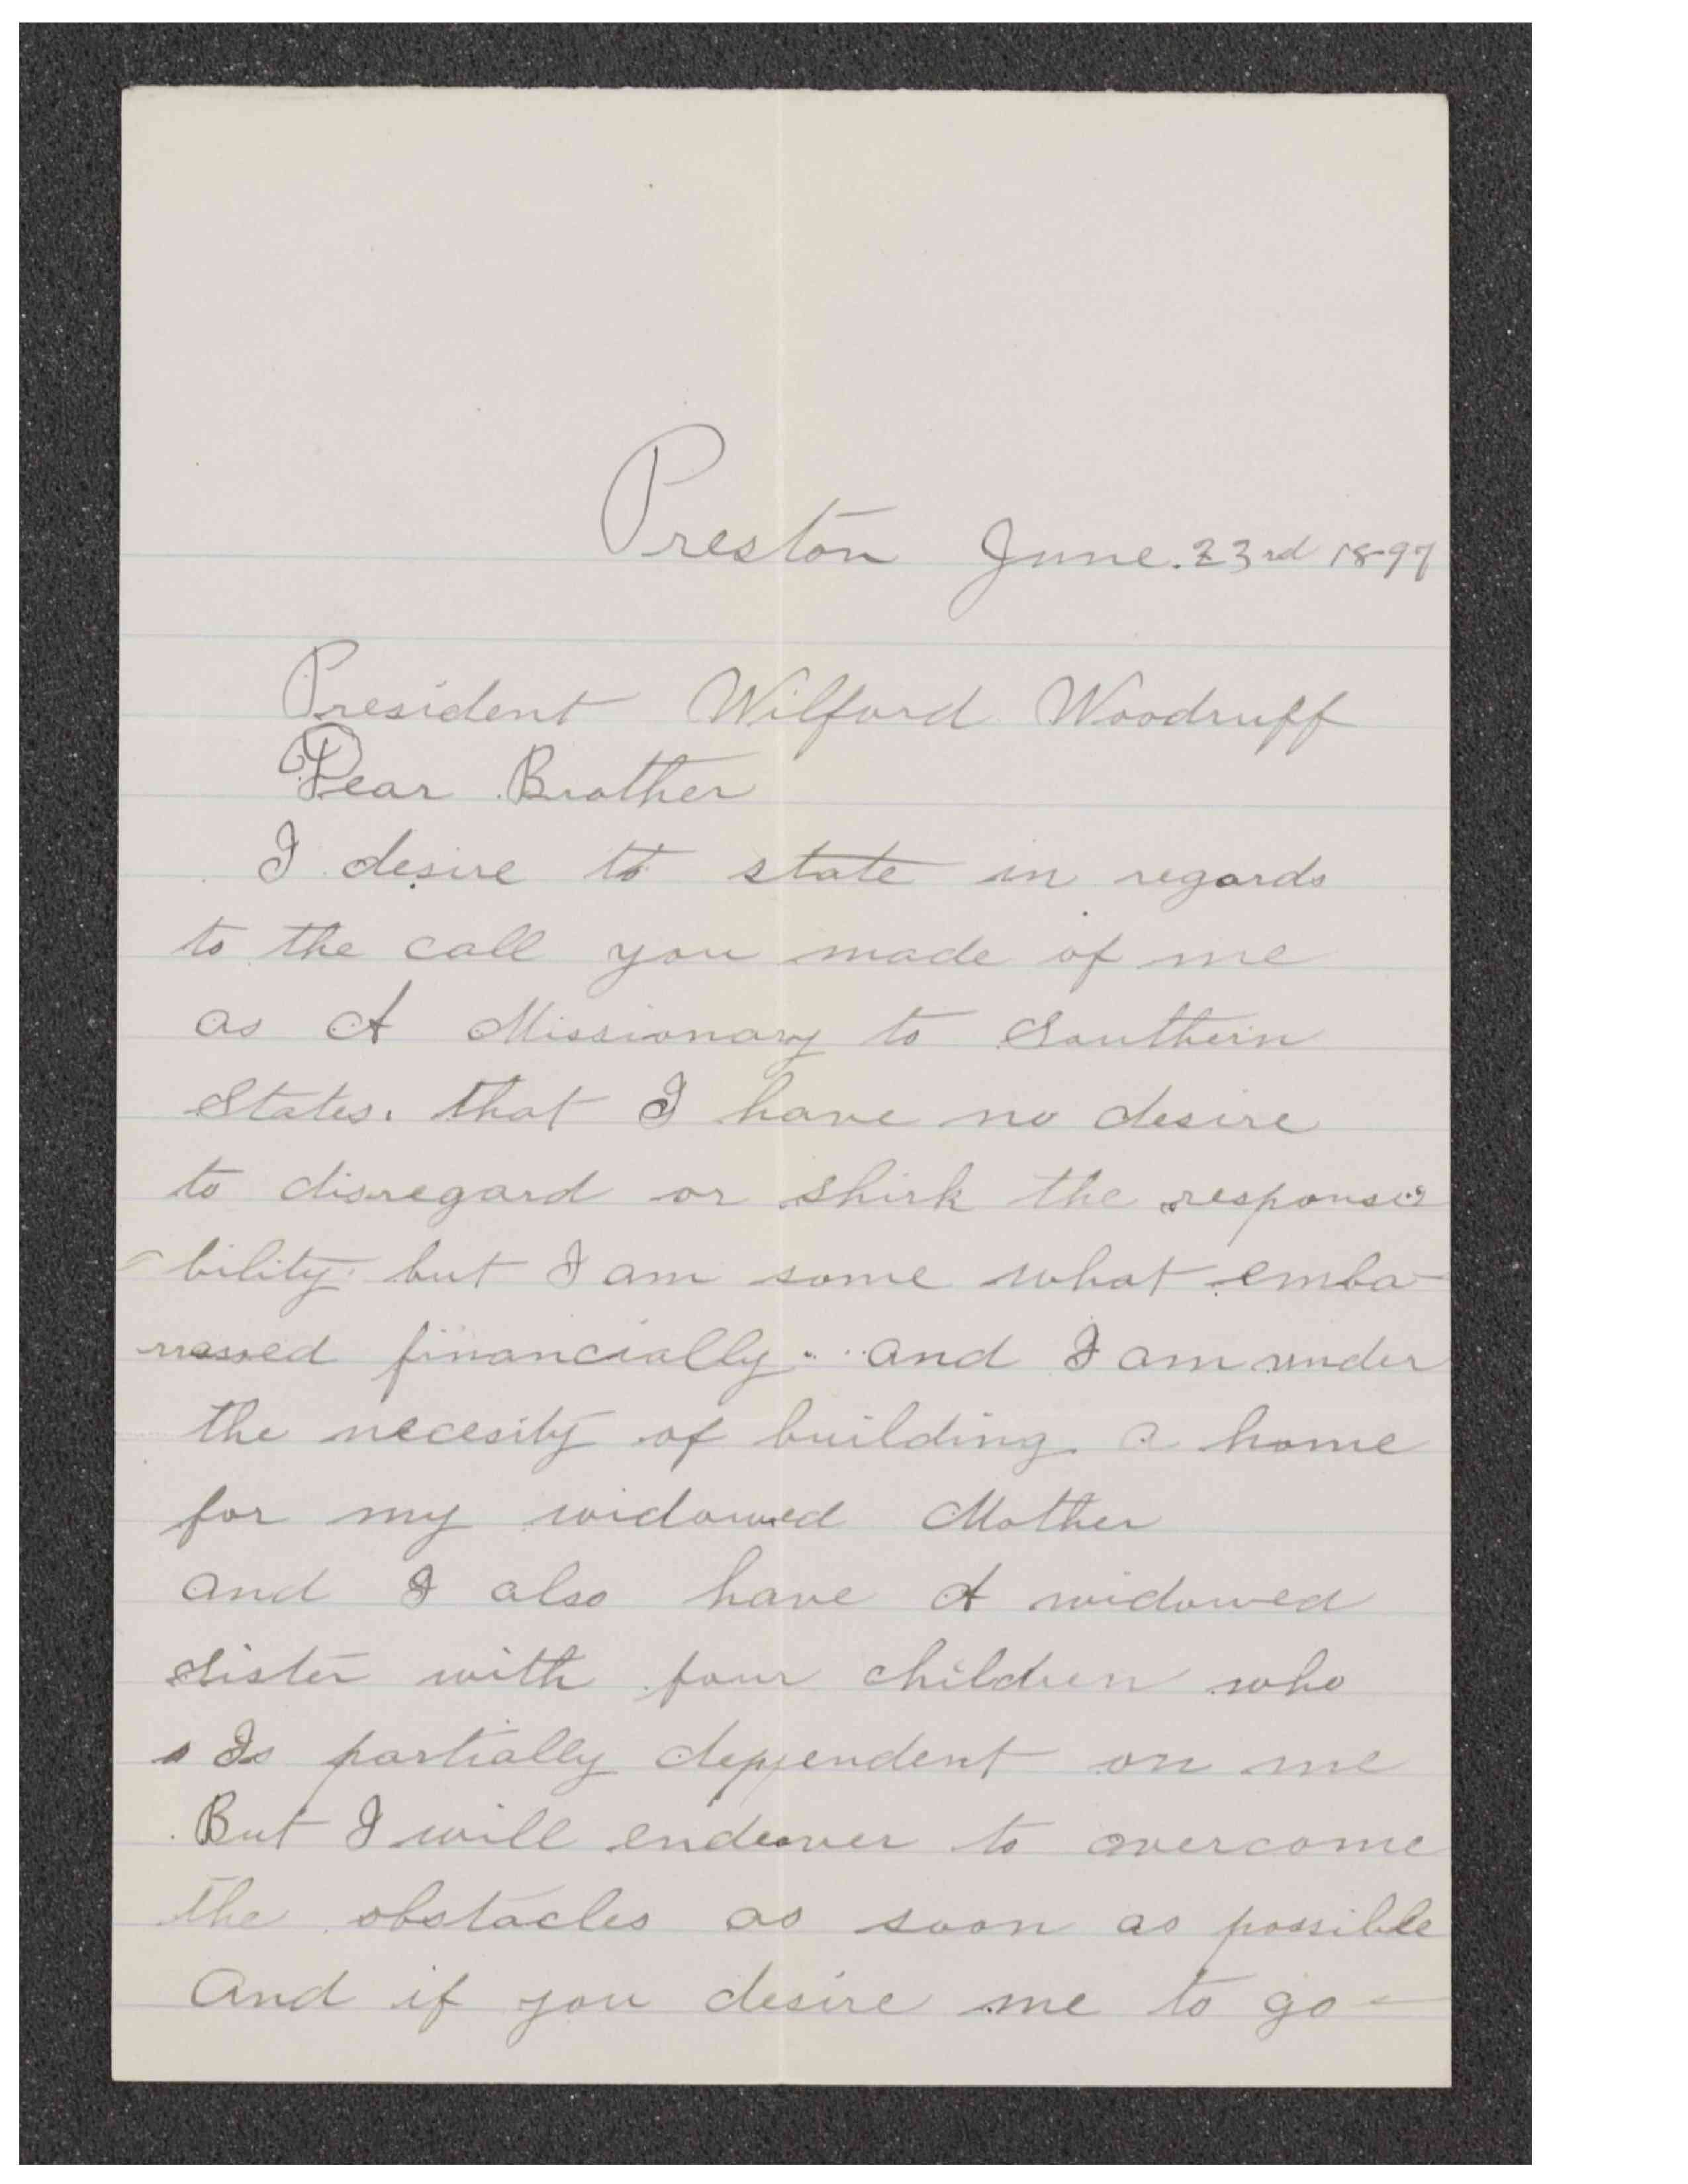 Preston June. 23rd 1897
President Wilford Woodruff
Dear Brother
I desire to state in regards
to the call you made of me
as A Missionary to Southern
States. that I have no desire
to disregard or shirk the responsi
-bility. but I am some what emba-
rrassed financially. and I am under
the necesity of building a home
for my widowed Mother
and I also have A widowed
Sister with four children who
Is partially dependent on me
But I will endeaver to overcome
the obstacles as soon as possible
And if you desire me to go-